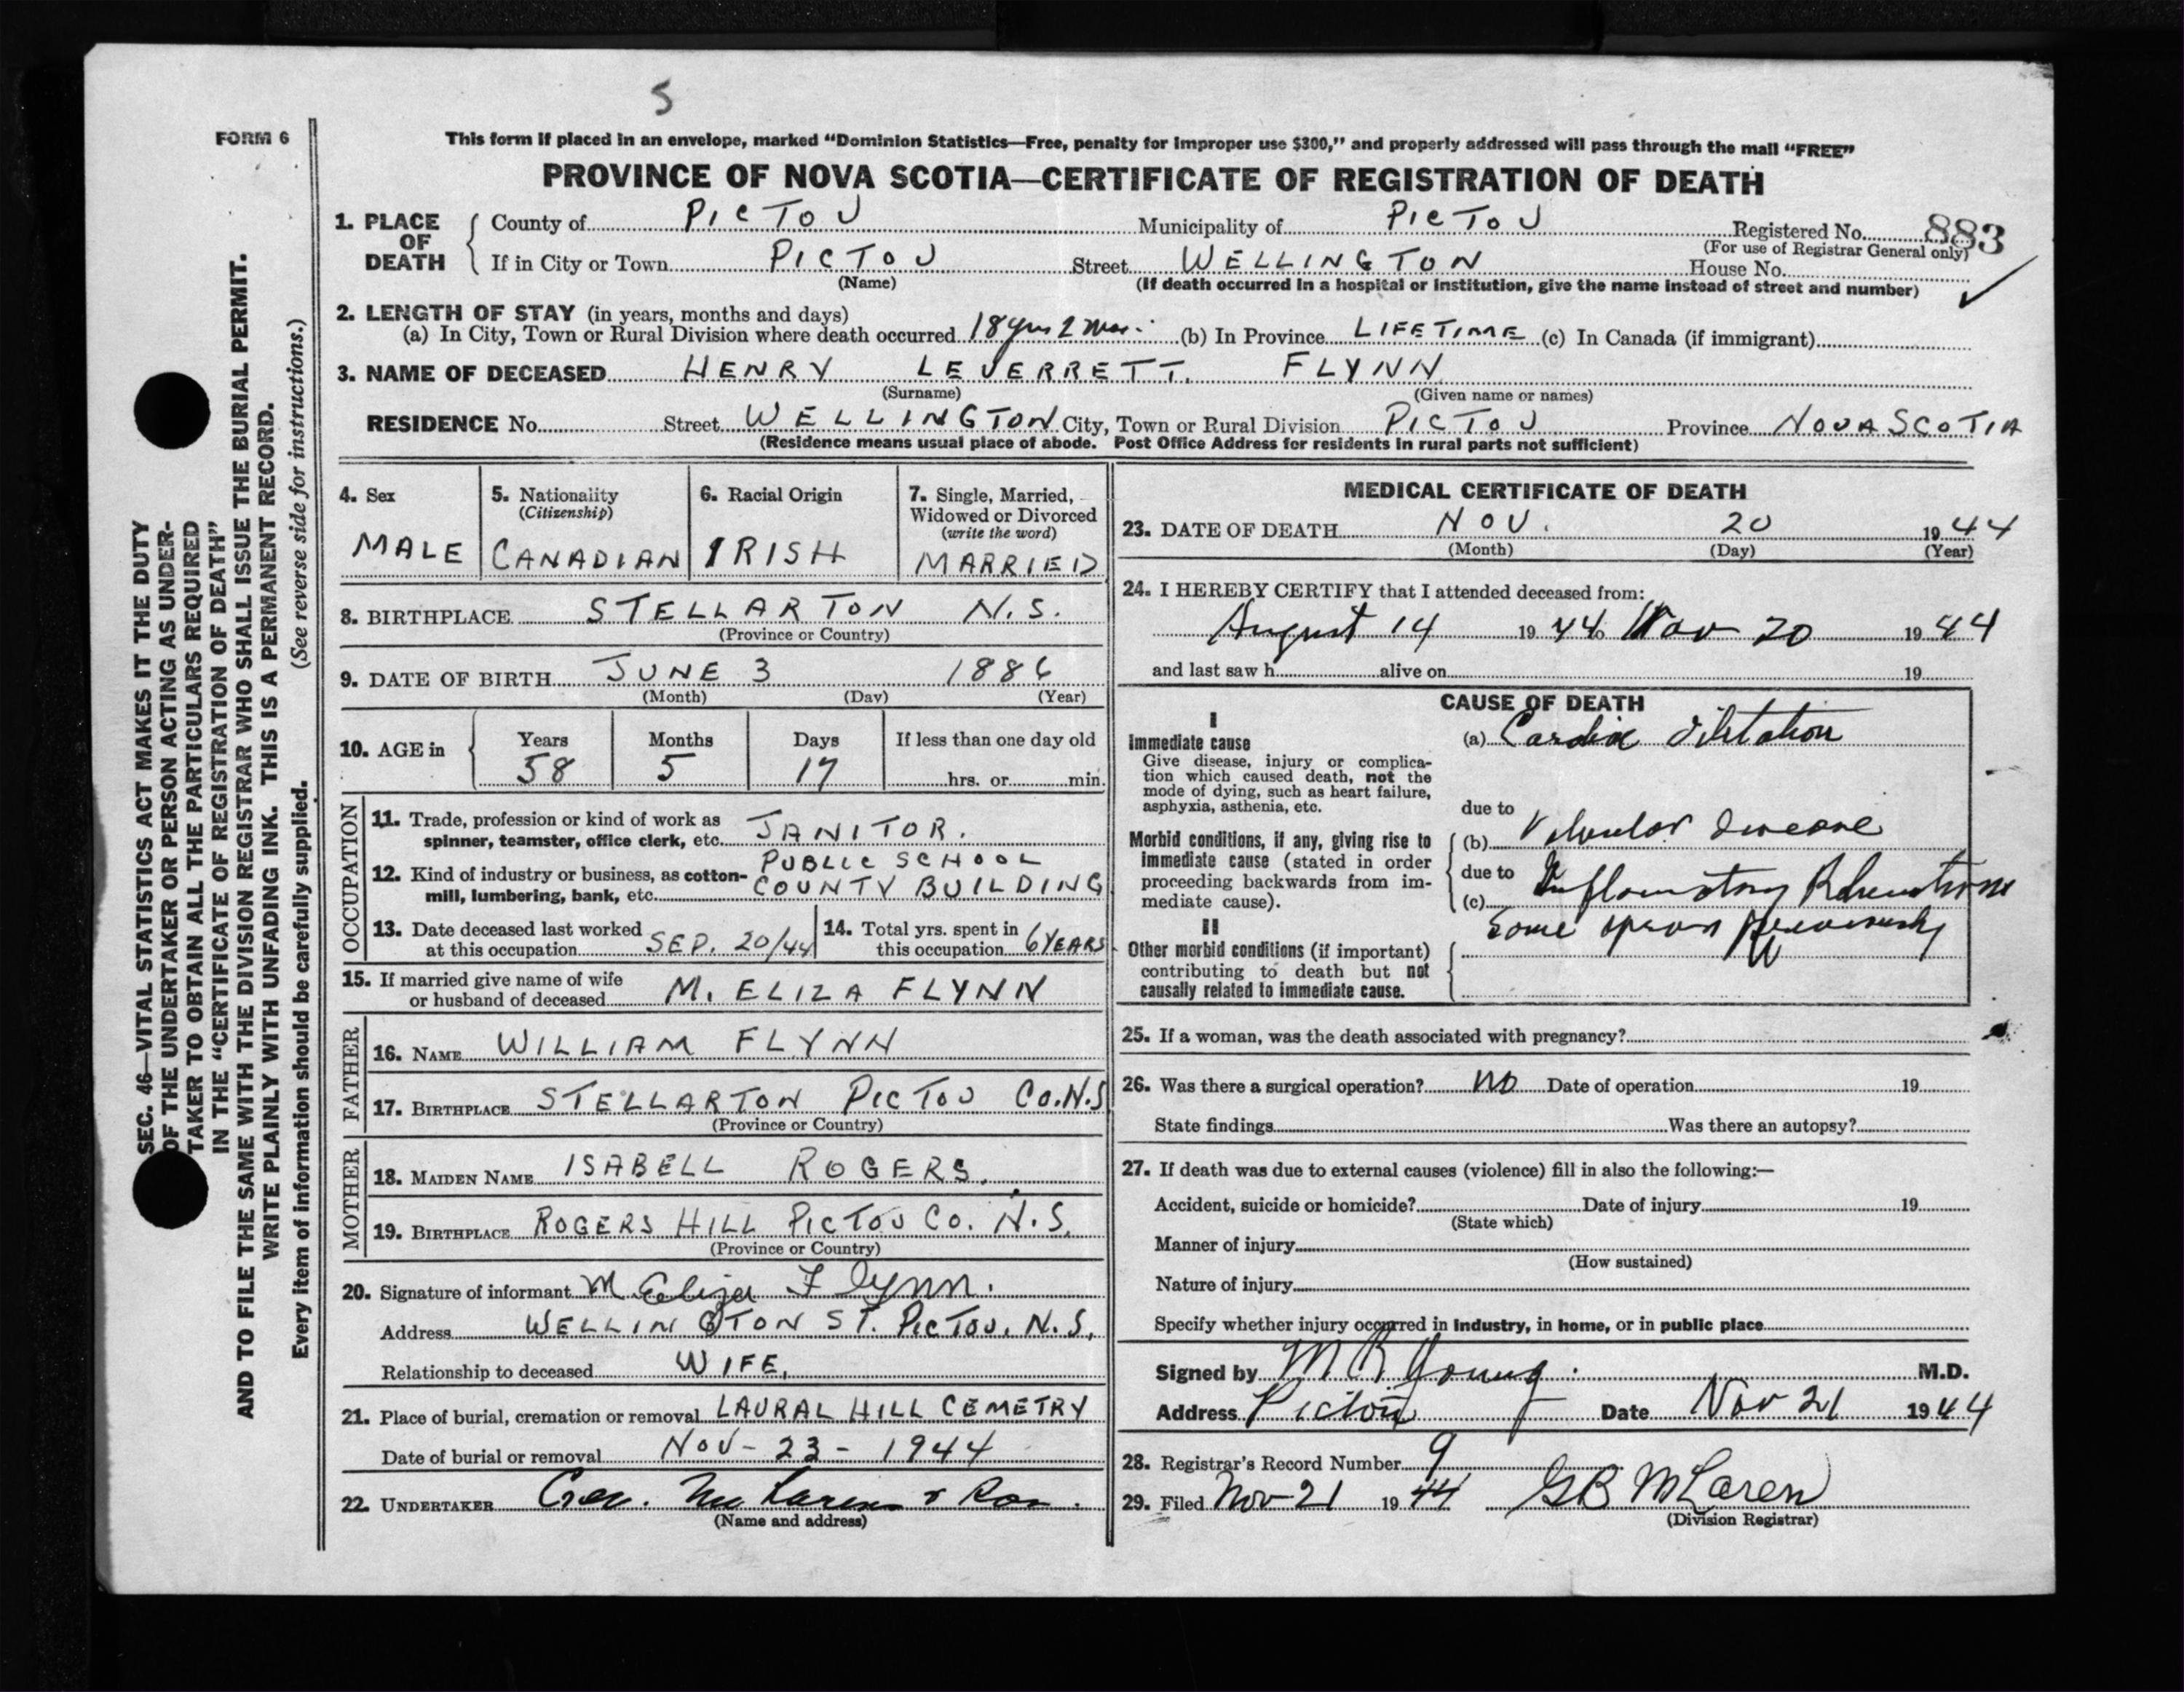 S
FORM 6
This form if placed in an envelope, marked “Dominion Statistics—Free, penalty for improper use $300,” and properly addressed will pass through the mail “FREE”
PROVINCE OF NOVA SCOTIA—CERTIFICATE OF REGISTRATION OF DEATH
1. PLACE OF DEATH County of PICTOU Municipality of PICTOU Registered No. 883
(For use of Registrar General only)
If in City or Town PICTOU Street WELLINGTON House No.
(Name) (If death occurred in a hospital or institution, give the name instead of street and number)
2. LENGTH OF STAY (in years, months and days)
(a) In City, Town or Rural Division where death occurred 18 yrs 2 mos. (b) In Province LIFETIME (c) In Canada (if immigrant)
3. NAME OF DECEASED HENRY LEVERRETT FLYNN
(Surname) (Given name or names)
RESIDENCE No. Street WELLINGTON City, Town or Rural Division PICTOU Province NOVA SCOTIA
(Residence means usual place of abode. Post Office Address for residents in rural parts not sufficient)
4. Sex
MALE
5. Nationality
(Citizenship)
CANADIAN
6. Racial Origin
IRISH
7. Single, Married,
Widowed or Divorced
(write the word)
MARRIED
8. BIRTHPLACE STELLARTON N.S.
(Province or Country)
9. DATE OF BIRTH JUNE 3 1886
(Month) (Day) (Year)
10. AGE in Years Months Days If less than one day old
58 5 17 hrs. or min.
OCCUPATION
11. Trade, profession or kind of work as
spinner, teamster, office clerk, etc. JANITOR.
12. Kind of industry or business, as cotton- PUBLIC SCHOOL
mill, lumbering, bank, etc. COUNTY BUILDING
13. Date deceased last worked
at this occupation SEP. 20/44
14. Total yrs. spent in
this occupation 6 YEARS
15. If married give name of wife
or husband of deceased M. ELIZA FLYNN
FATHER
16. NAME WILLIAM FLYNN
17. BIRTHPLACE STELLARTON PICTOU CO. N.S
(Province or Country)
MOTHER
18. MAIDEN NAME ISABELL ROGERS.
19. BIRTHPLACE ROGERS HILL PICTOU CO. N.S.
(Province or Country)
20. Signature of informant M Eliza Flynn.
Address WELLINGTON ST. PICTOU, N.S,
Relationship to deceased WIFE,
21. Place of burial, cremation or removal LAURAL HILL CEMETRY
Date of burial or removal NOV - 23 - 1944
22. UNDERTAKER Geo. McLaren & Son.
(Name and address)
MEDICAL CERTIFICATE OF DEATH
23. DATE OF DEATH NOV. 20 1944
(Month) (Day) (Year)
24. I HEREBY CERTIFY that I attended deceased from:
August 14 1944 to Nov 20 1944
and last saw h alive on 19
CAUSE OF DEATH
I
Immediate cause
Give disease, injury or complica-
tion which caused death, not the
mode of dying, such as heart failure,
asphyxia, asthenia, etc.
(a) Cardiac dilatation
due to
Morbid conditions, if any, giving rise to
immediate cause (stated in order
proceeding backwards from im-
mediate cause).
(b) Valvular disease
due to
(c) Inflamatory Rheumatism
Some years previously
II
Other morbid conditions (if important)
contributing to death but not
causally related to immediate cause.
25. If a woman, was the death associated with pregnancy?
26. Was there a surgical operation? no Date of operation 19
State findings Was there an autopsy?
27. If death was due to external causes (violence) fill in also the following:—
Accident, suicide or homicide? Date of injury 19
(State which)
Manner of injury
(How sustained)
Nature of injury
Specify whether injury occurred in industry, in home, or in public place
Signed by M R Young. M.D.
Address Pictou Date Nov 21 1944
28. Registrar's Record Number 9
29. Filed Nov 21 1944 G B McLaren
(Division Registrar)
SEC. 46—VITAL STATISTICS ACT MAKES IT THE DUTY
OF THE UNDERTAKER OR PERSON ACTING AS UNDER-
TAKER TO OBTAIN ALL THE PARTICULARS REQUIRED
IN THE “CERTIFICATE OF REGISTRATION OF DEATH”
AND TO FILE THE SAME WITH THE DIVISION REGISTRAR WHO SHALL ISSUE THE BURIAL PERMIT.
WRITE PLAINLY WITH UNFADING INK. THIS IS A PERMANENT RECORD.
Every item of information should be carefully supplied. (See reverse side for instructions.)